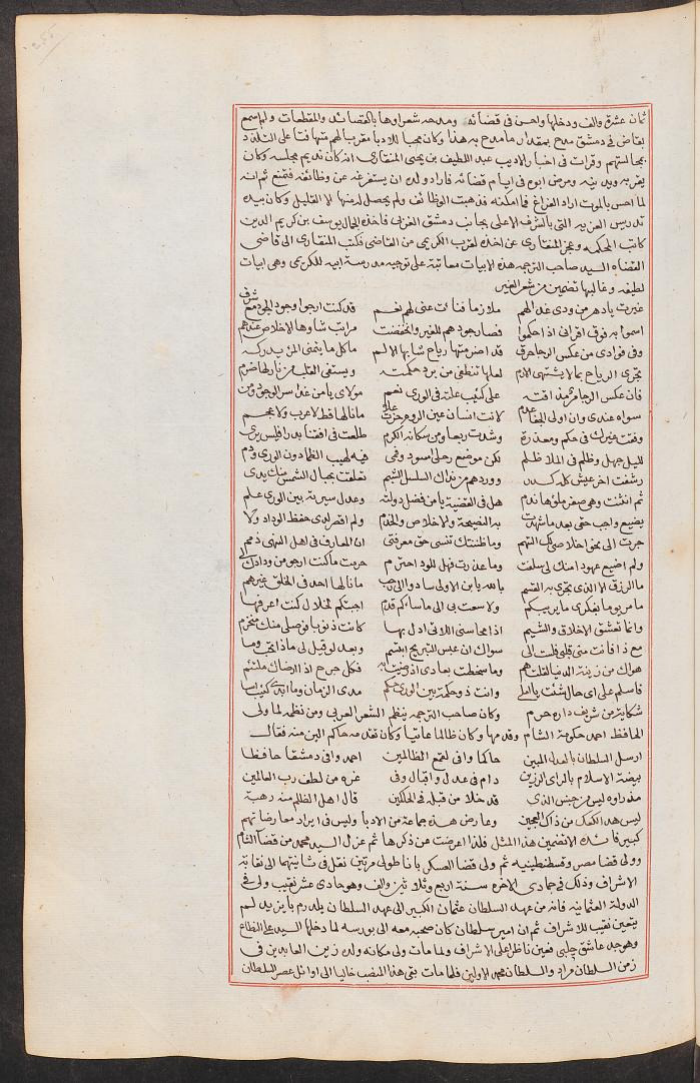 ثمان عشرة والف ودخلها واحسن في قضائه ومدحه شعراوها بالقصائد والمقطعات ولم اسمع
بقاض في دمشق مدح بمقدار ما مدح به هذا وكان محبا للادبا مقربا لهم متهافتا على التلذذ
بمجالستهم وقرات في اخبار الاديب عبد اللطيف بن يحيى المنقاري انه كان نديم مجلسه وكان
يقربه ويدنيه ومرض ابوه في ايام قضائه فاراد ولده ان يستفرغه عن وظائفه فتمنع ثم انه
لما احس بالموت اراد الفراغ فما امكنه فذهبت الوظائف ولم يحصل له منها الا القليل وكان بيده
تدريس العزيه التي بالشرف الاعلى بجانب دمشق الغربي فاخذه الجمال يوسف بن كريم الدين
كاتب المحكمه وعجز المنقاري عن اخذه لقرب الكريمي من القاضي فكتب المنقاري الى قاضي
القضاه السيد صاحب الترجمه هذه الابيات معاتبة على توجيه مدرسة ابيه للكريمي وهي ابيات
لطيفه وغالبها تضمين من شعر الغير
غيرت يا دهر من ودي غدا لهم ملازما فنات عني لهم نعم قد كنت ارجو وجود الجود مع شرف
اسموا به فوق اقراني اذا حكموا فصار جودهم للغير وانخفضت مراتب شاوها الاخلاص عندهم
وفي فوادي من عكس الرجا حرق قد اضرمتها رياح شابها الالم ما كل ما يتمنى المرء يدركه
تجري الرياح بما لا يشتهي الارم لعلها تنطفي من برد حكمته ويستفي القلب من نار لها ضرم
فان عكس الرجا على كئيب علته في الورى نعم مولاي يا من غدا سر الوجود ومن
سواه عندي وان اولى الجفا عدم لانت انسان عين الروم حزت علا ما نالها قط لا عرب ولا عجم
وفقت غيرك في حكم ومعذرة وشدت ربعا ومن سكانه الكرم طلعت في افقنا بدرا فليس يرى
لليل جهل وظلم في الملا ظلم لكن موضع رحلي اسود وفمي فيه لهيب الظما دون الورى ودم
رشفت اخر عيش كله كدر ووردهم من نداك السلسل الشيم تعلقت بحبال الشمس منك يدي
ثم انثنت وهي صفر ملوها ندم هل في القضية يا من فضل دولته وعدل سيرته بين الورى علم
يضيع واجب حقي بعد ما شهدت به النصيحة والاخلاص والخدم ولم اقصر لدى حفظ الوداد ولا
جرت الى نحو اخلاصي لك التهم وما ظننتك تنسى حق معرفتي ان المعارف في اهل النهى ذمم
ولم اضيع عهودا منك لي سلفت وما غدرت فهل للود احترم حرمت ما كنت ارجو من ودادك لي
ما الرزق الا الذي تجري به القسم بالله يا بن الاولى سادوا الى رتب ما نالها احد في الخلق غيرهم
ما مر يوما بفكري ما يريبكم ولا سعت بي الى ما ساكم قدم احبكم لخلال كنت اعرفها
وانما تعشق الاخلاق والشيم اذا محاسني اللاتي ادل بها كانت ذنوبا فوصلي منك منخرم
مع ذا فانت متى قلبي فلت الى سواك ان عيس التبريح ابتسم وبعد لو قيل لي ماذا تحب وما
هواك من زينة الدنيا لقلت هم وما سخطت بعادي اذ رضيت به فكل جرح اذا ارضاك ملتئم
فاسلم على اي حال شئت يا املي وانت ذو حكمة بين الورى حكم مدى الزمان وما ابدى كئيب اسا
شكاية من شريف داره حرم وكان صاحب الترجمه ينظم الشعر العربي ومن نظمه لما ولي
الحافظ احمد حكومة الشام وقدمها وكان ظالما عاتيا وكان تقدمه حاكم الين منه فقال
ارسل السلطان بالعدل المبين حاكما وافى لقمع الظالمين احمد وافى دمشقا حافظا
بيضة الاسلام بالراي الرزين دام في عدل واقبال وفي عزه من لطف رب العالمين
مذ راوه ليس من جنس الذي قد خلا من قبله في الحاكمين قال اهل الظلم منه رهبة
ليس هذا الكعك من ذاك العجين وعارض هذه جماعة من الادبا وليس في ايراد معارضاتهم
كبير فائده الا تضمين هذا المثل فلذا اعرضت عن ذكرها ثم عزل السيد محمد من قضا الشام
وولي قضا مصر وقسطنطينيه ثم ولي قضا العسكر باناطولي مرتين نقل في ثانيتهما الى نقابة
الاشراف وذلك في جمادى الاخره سنة اربع وثلاثين والف وهو حادي عشر نقيب ولي في
الدولة العثمانيه فانه من عهد السلطان عثمان الكبير الى عهد السلطان يلدرم بايزيد لم
يتعين نقيب للاشراف ثم ان امير سلطان كان صحبه معه الى بورسه لما دخلها السيد علي النطاع
وهو جد عاشق چلبي فعين ناظرا على الاشراف ولما مات ولي مكانه ولده زين العابدين في
زمن السلطان مراد والسلطان محمد الاولين فلما مات بقي هذا المنصب خاليا الى اوائل عصر السلطان